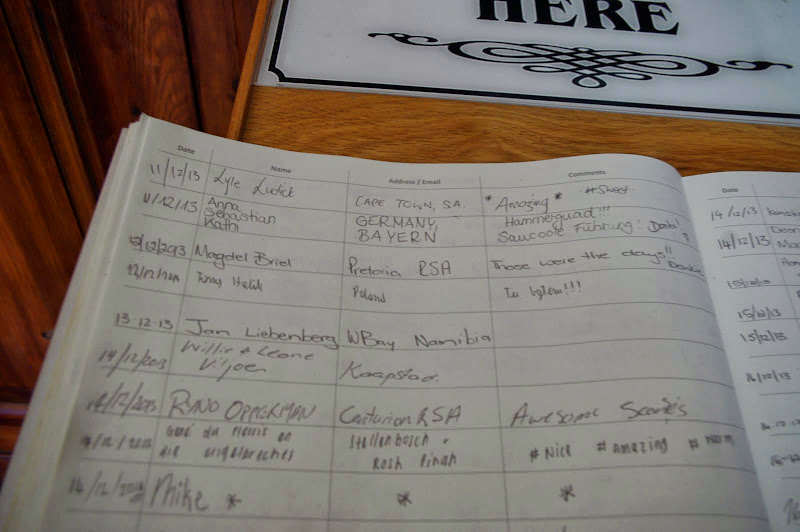 HERE
Date Name Address / Email Comments
11/12/13 Lyle Ludick CAPE TOWN, S.A. * Amazing * #Sweet
11/12/13 Anna GERMANY, Hammerquad!!!
Sebastian BAYERN Saucoole Führung! Danke!
Kathi
12/12/2013 Magdel Briel Pretoria RSA Those were the days!!
Dankie
Poland Tu byłem!!!
13-12-13 Jan Liebenberg WBay Namibia
14/12/2013 Willie & Leone Kaapstad
Viljoen
14/12/2013 RYNO OPPERMAN Centurion RSA Awesome
du Plessis en Stellenbosch + # Nice # amazing
die engelbrechts Rosh Pinah
14/12/2013 Mike * * *
Date
14/12/13
14/12/13
15/12/13
15/12/13
15/12/13
16/12/13